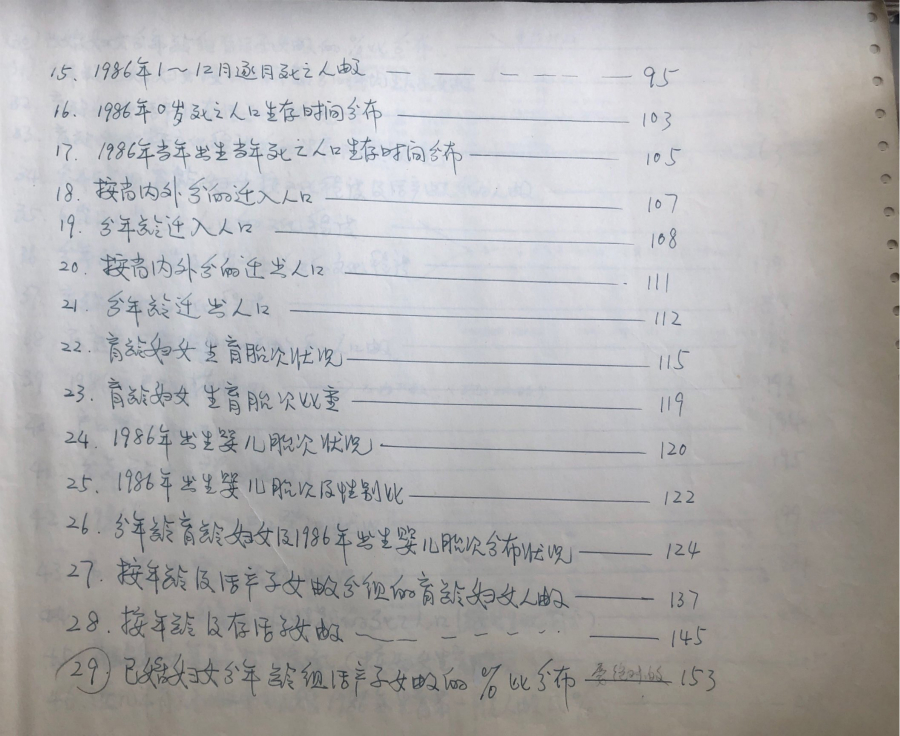 15. 1986年1～12月逐月死亡人数 —— — — — — —— 95
16. 1986年0岁死亡人口生存时间分布 —— 103
17. 1986年当年出生当年死亡人口生存时间分布 —— 105
18. 按省内外分的迁入人口 —— 107
19. 分年龄迁入人口 —— 108
20. 按省内外分的迁出人口 —— 111
21. 分年龄迁出人口 —— 112
22. 育龄妇女生育胎次状况 —— 115
23. 育龄妇女生育胎次比重 —— 119
24. 1986年出生婴儿胎次状况 —— 120
25. 1986年出生婴儿胎次及性别比 —— 122
26. 分年龄育龄妇女及1986年出生婴儿胎次分布状况 —— 124
27. 按年龄及活产子女数分组的育龄妇女人数 —— 137
28. 按年龄及存活子女数 —— — — — … —— 145
29 已婚妇女分年龄组活产子女数的%比分布 —— 153